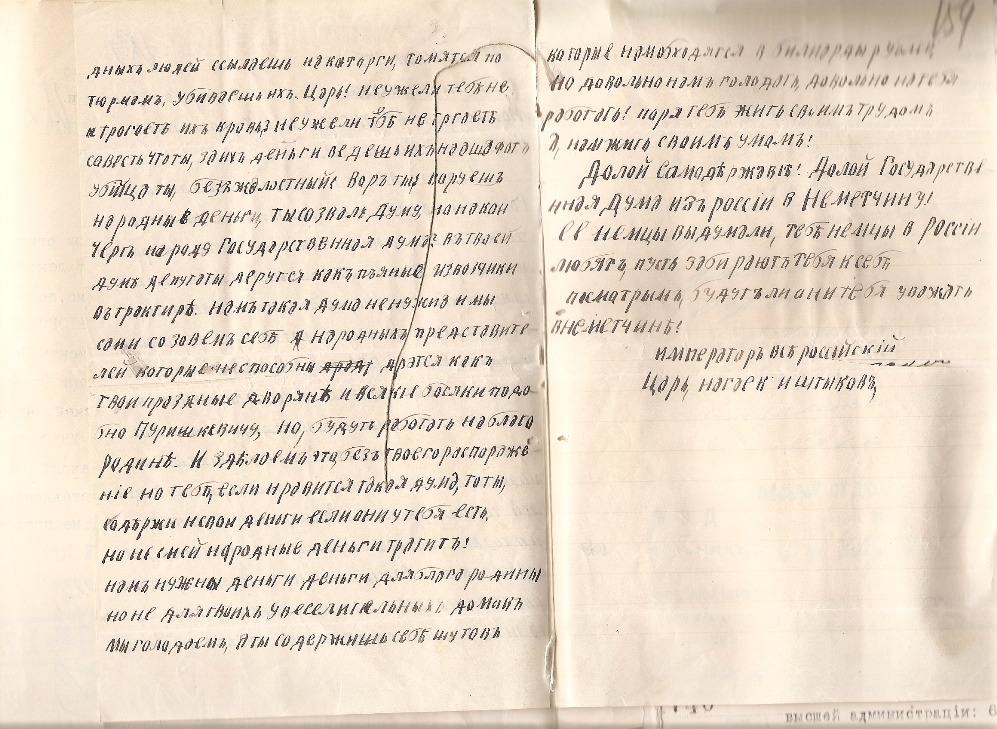 дныхъ людей ссылаешь на каторги, томятся по
тюрмамъ, убиваешъ ихъ. Царь! неужели тебѣ не
трогаетъ ихъ кровь? неужели тебѣ не трогаетъ
савесть что ты, за ихъ деньги ведешь ихъ на эшафотъ
убійца ты, безжалостный! Воръ ты! варуешъ
народные деньги, ты созвалъ Думу, на накой
чертъ народу Государственная дума? въ твоей
думѣ депутаты дерутся какъ пъяные извозчики
въ трактирѣ. Намъ такая дума ненужна и мы
сами созовемъ себѣ народныхъ представите-
лей которые неспособны дратся какъ
твои праздные дворянѣ и всякіе босяки подо-
бно Пуришкевичу, но, будутъ работать на благо
родинѣ. И здѣлаемъ это, безъ твоего распоряже-
ніе но тебѣ, если нравится такая дума, то ты,
садержи на свои деньги если они у тебя есть,
но не смей народные деньги тратить!
намъ нужны деньги деньги для благо родины
но не для твоихъ увеселительныхъ домакъ
мы голодаемъ, а ты содержишь себѣ шутовъ
159
которые намъ обходятся в билиарды рублей
Но довольно намъ голодать, довольно на тебя
работать! пора тебѣ жить своимъ трудомъ
а, нам жить своимъ умомъ!
Долой Самадѣржавіе! Долой Государстве-
нная Дума изъ россіи в Неметчину!
Её немцы выдумали, тебѣ немцы в Россіи
любятъ, пусть забираютъ тебя к себѣ
посматрымъ, будутъ ли они тебя уважать
в неметчинѣ!
императоръ всѣроссійскій
Царь нагаек и штиковъ,
высшей администраціи: 6